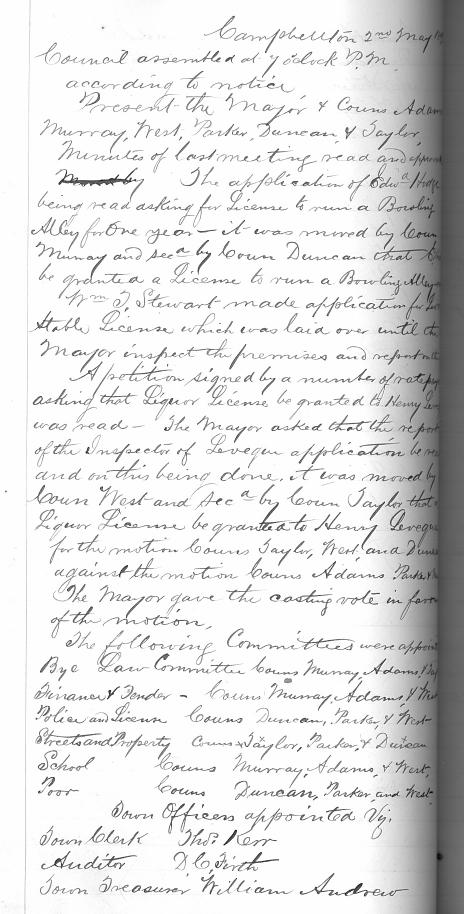 Campbellton 2nd May
Council assembled at 7 o'clock P.M.
according to notice
Present the Mayor & Couns Adam
Murray, West, Parker, Duncan & Taylor,
Minutes of last meeting read and approv
Moved by The application of Edwd Hodge
being read asking for License to run a Bowling
Alley for One year – it was moved by Coun
Murray and secd by Coun Duncan that
be granted a License to run a Bowling Alley
Wm J. Stewart made application for
Stable License which was laid over until the
Mayor inspect the premises and report
A petition signed by a number of ratepay
asking that Liquor License be granted to Henry Lev
was read – The Mayor asked that the report
of the Inspector of Leveque application be re
and on this being done, it was moved by
Coun West and Secd by Coun Taylor that a
Liquor License be granted to Henry Leveque
for the motion Couns Taylor, West, and Dunc
against the motion Couns Adams Parker &
The Mayor gave the casting vote in favor
of the motion,
The following Committees were appoint
Bye Law Committee Couns Murray, Adams, & Tay
Finance & Tender – Couns Murray, Adams, & West
Police and License Couns Duncan, Parker & West
Streets and Property Couns Taylor, Parker, & Duncan
School Couns Murray, Adams, & West,
Poor Couns Duncan, Parker, and West.
Town Officers appointed Viz;
Town Clerk Thos. Kerr
Auditor D C, Firth
Town Treasurer William Andrew